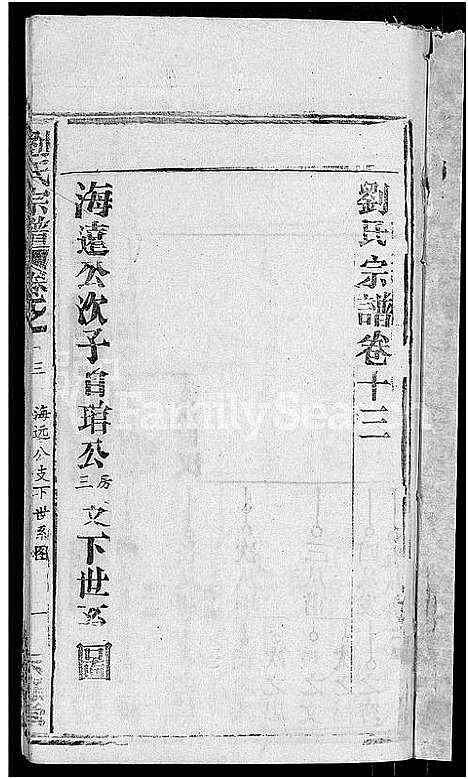 劉氏宗譜卷十三
海遠公次子自琯公三房支下世系圖
劉氏宗譜 卷之 十三 海远公支下世系图 一
FamilySearch